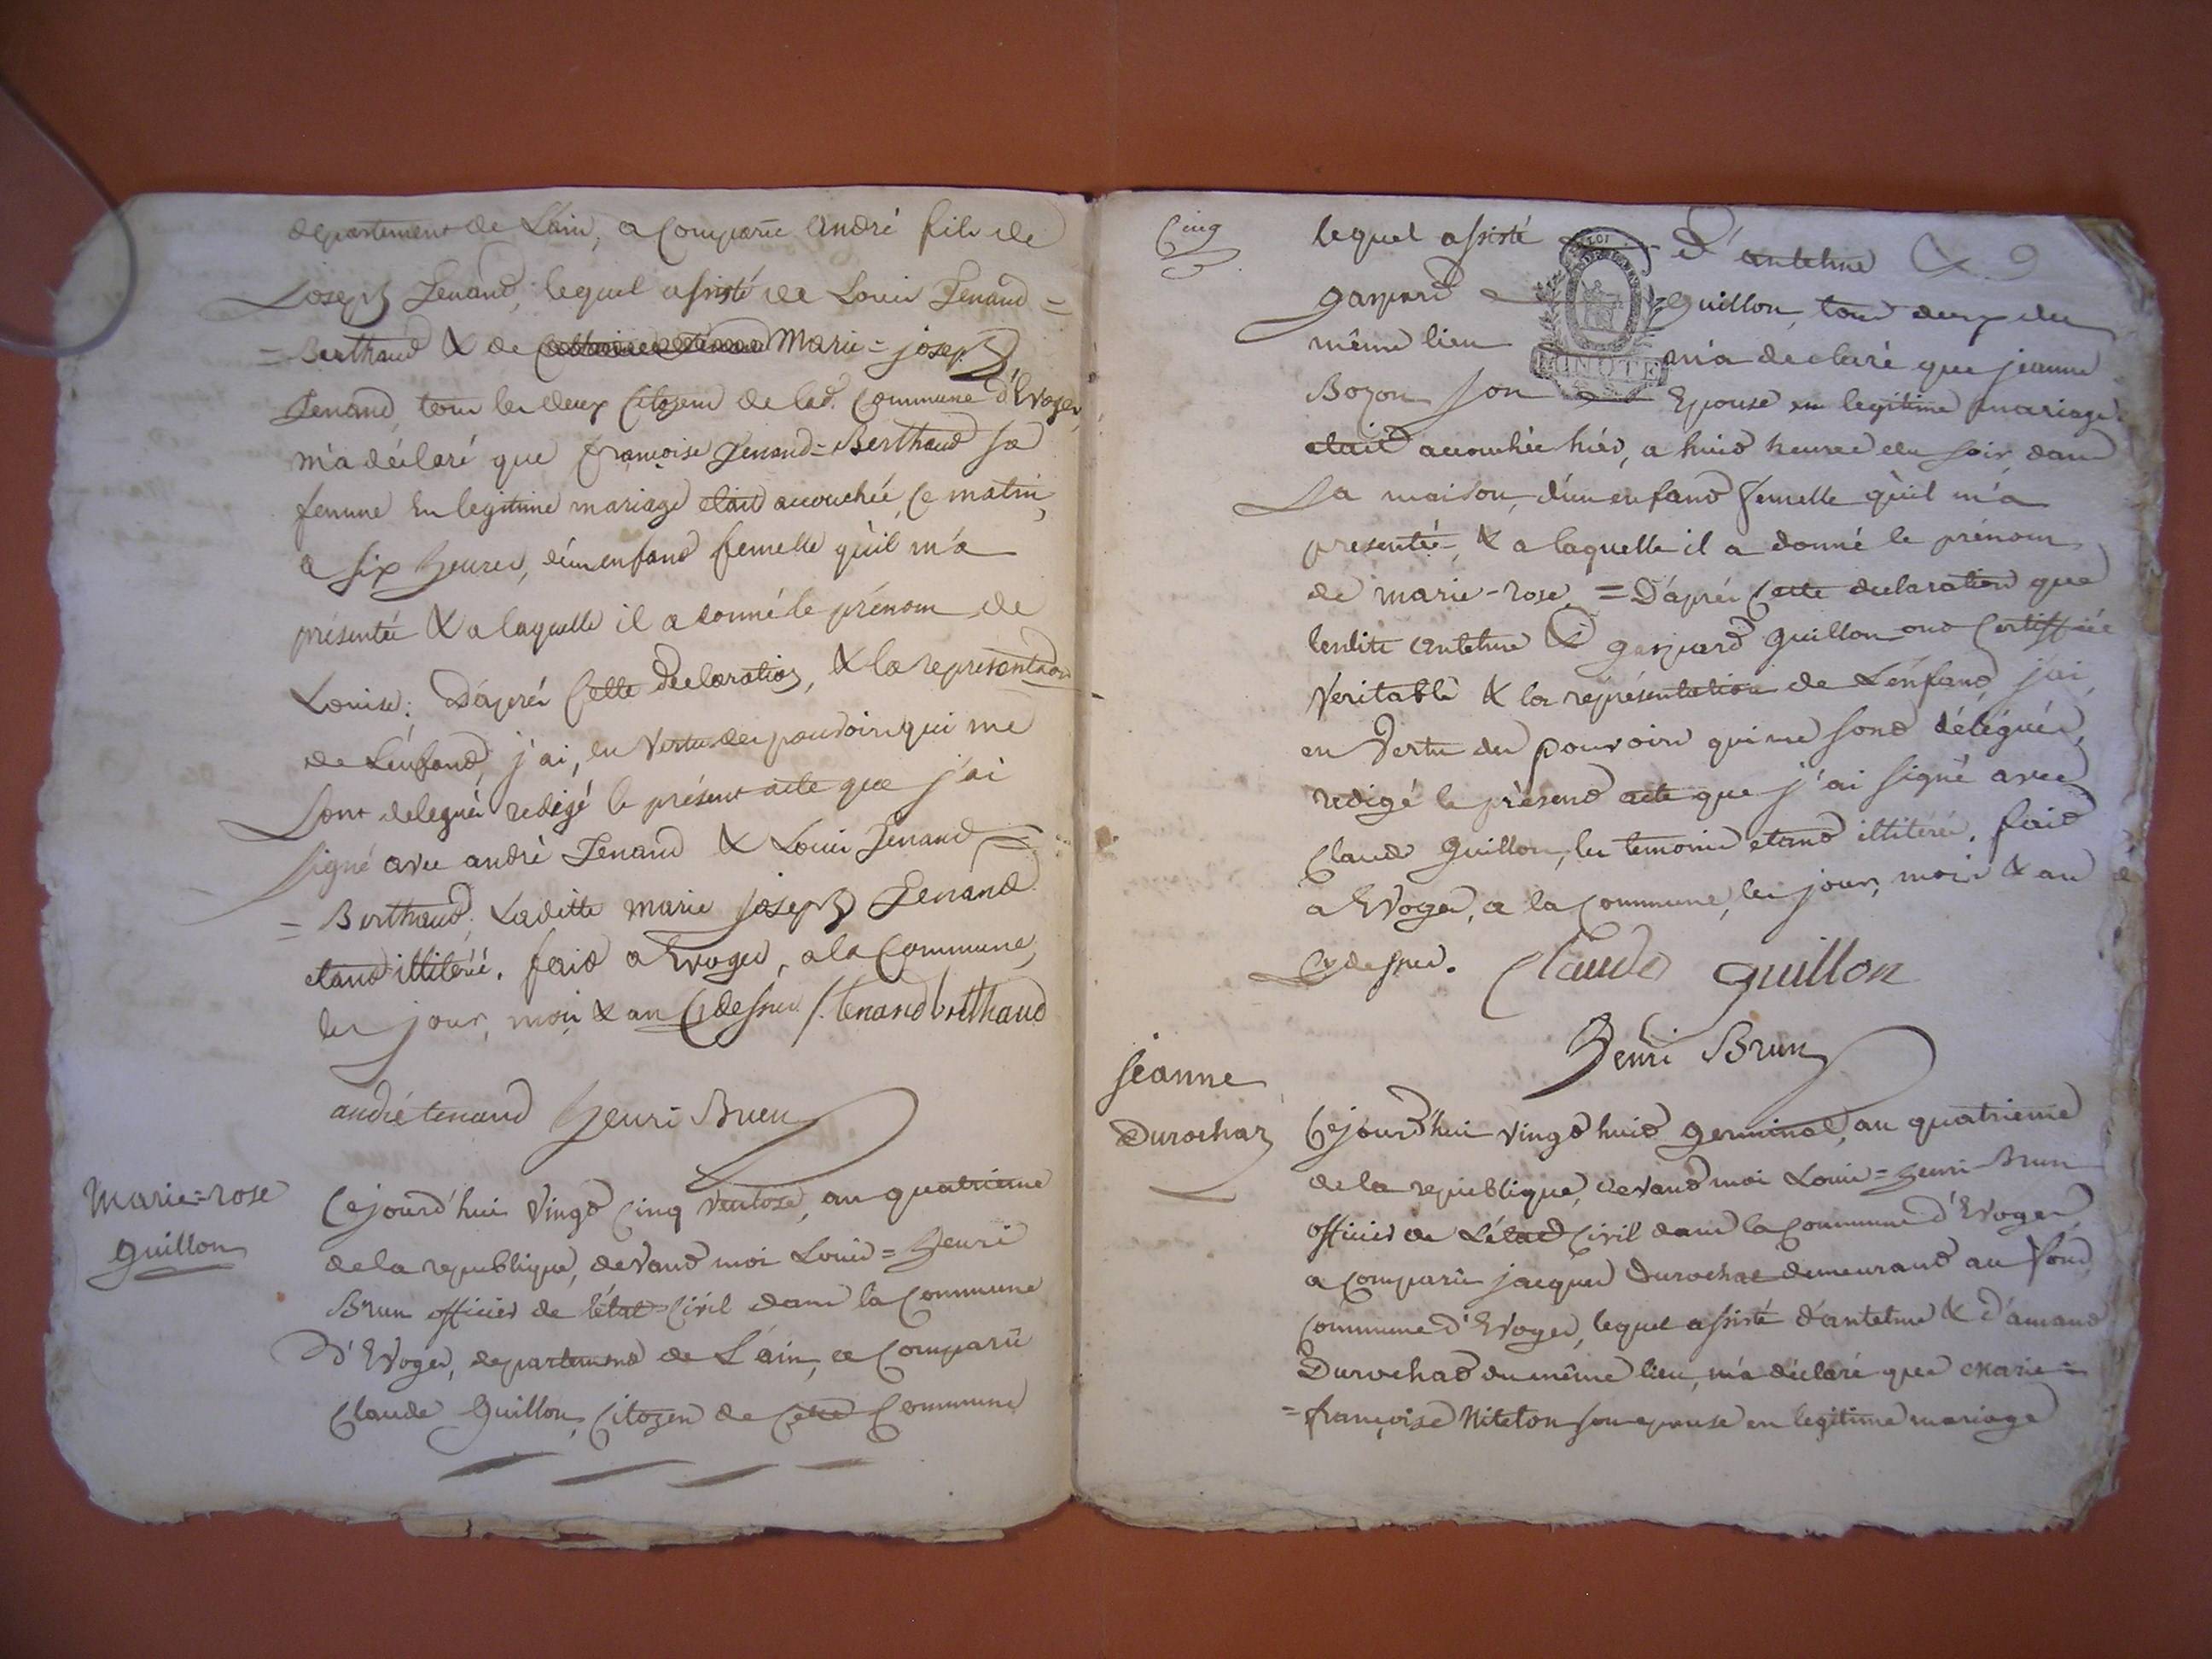 departement de L'ain, a comparu andré fils de
Joseph Tenand, lequel assisté de Louis Tenand =
= Berthaud & de Marie = joseph
Tenand, tous les deux Citoyens de lad. Commune d'Evoges,
m'a déclaré que françoise Tenand = Berthaud sa
femme en legitime mariage etait accouchée, ce matin,
a six heures, d'un enfand femelle qu'il m'a
présentée & a laquelle il a donné le prénom de
Louise. D'aprés cette declaration, & la representaon
de L'enfand, j'ai, en Vertu des pouvoirs qui me
sont delegués redigé le présent acte que j'ai
signé avec andré Tenand & Louis Tenand =
= Berthaud, Laditte marie joseph Tenand
etand illiterée. faid a Evoges, a la Commune,
les jour, mois & an Cy dessus /. tenand berthaud
andré tenand henri Brun
Marie = rose
guillon
Cejourd'hui Vingd Cinq Ventose, an quatrieme
de la republique, devand moi Louis = henri
Brun officier de l'état Civil dans la Commune
d'Evoges, departemend de L'ain, a Comparû
Claude Guillon, Citoyen de Cette Commune
Cinq
lequel assisté d'antelme & 9
gaspard guillon, tous deux du
même lieu m'a declaré que jeanne
MINUTE
Bozon son Epouse en legitime mariage
etait accouchée hier, a huid heures du soir, dans
sa maison, d'un enfand femelle qu'il m'a
presentée, & a laquelle il a donné le prénom
de marie-rose, = D'aprés Cette declaration que
lesdits antelme & gaspard guillon ond Certiffiée
Veritable & la représentation de L'enfand, j'ai,
en Vertu des pouvoirs qui me sond délégués,
redigé le présend acte que j'ai signé avec
Claude Guillon, les temoins etand illiterés. faid
a Evoges, a la Commune, les jour, mois & an
Cy dessus. Claude guillon
henri Brun
jeanne
Durochaz
Cejourd'hui vingd huid germinal, an quatrieme
de la republique, devand moi Louis = henri Brun
officier de L'état Civil dans la Commune d'Evoges
a Comparû jacques Durochat demeurand au fond
Commune d'Evoges, lequel assisté d'antelme & d'amand
Durochad du même lieu, m'a déclaré que Marie =
= françoise Niteton son epouse en legitime mariage